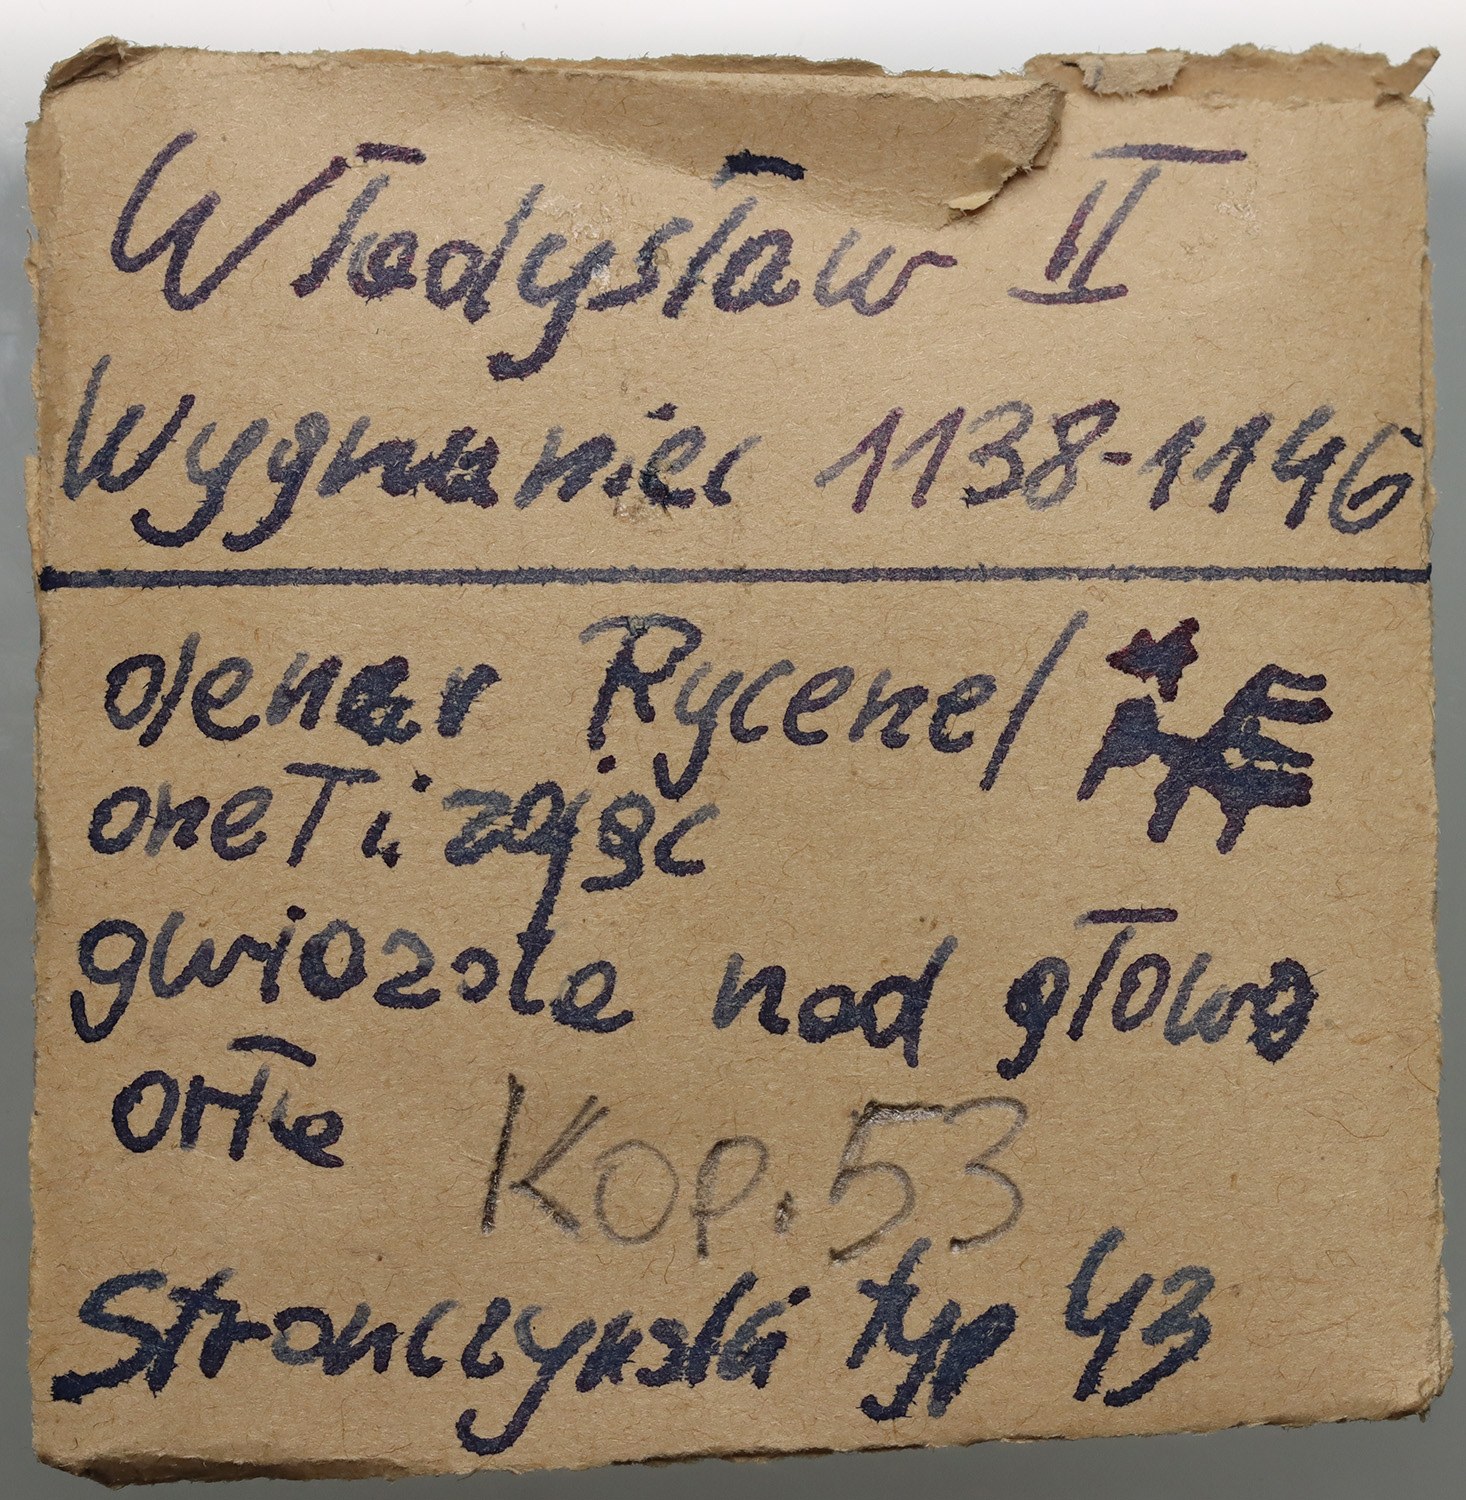 Władysław II
Wygnaniec 1138-1146
denar Rycerze/
oneł i zając
gwiazda nad głową
orła
Kop. 53
Stronczyński typ 43